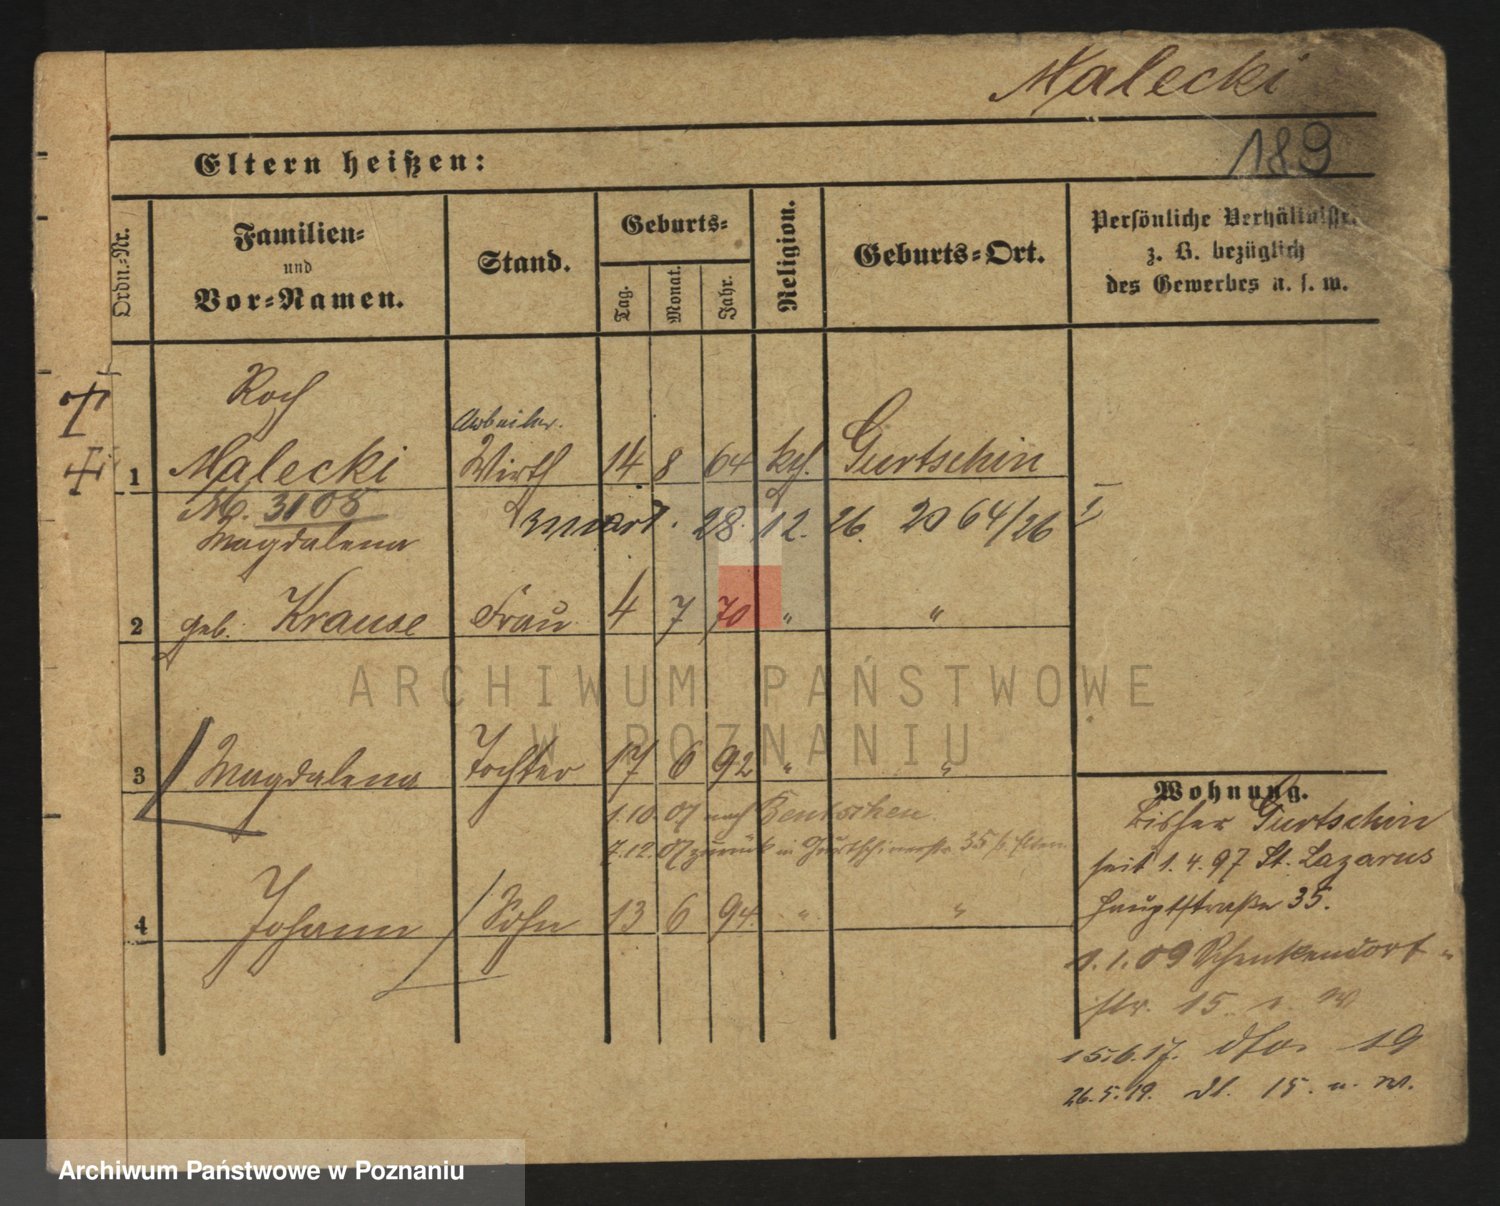 Malecki
189
Eltern heißen:
Ordn.-Nr.
Familien-
und
Vor-Namen.
Stand.
Geburts-
Tag.
Monat.
Jahr.
Religion.
Geburts-Ort.
Persönliche Verhältnisse
z. B. bezüglich
des Gewerbes u. s. w.
Roch
Arbeiter.
1 Malecki Wirth 14 8 64 kth. Gurtschin
M. 3108
28. 12. 26. 2064/26
Magdalena
2 geb. Krause Frau 4 7 70 " "
ARCHIWUM PAŃSTWOWE
W POZNANIU
3 Magdalena Tochter 17 6 92 " "
1.10.07 nach Bentschen.
7.12.07 zurück in Gurtschinerstr. 35
4 Johann Sohn 13 6 94. " "
Wohnung.
bisher Gurtschin
seit 1.4.97 St. Lazarus
Hauptstraße 35.
1.1.09 Schenkendorf-
str. 15
15.6.17. dto. 19
26.5.19. 15.
Archiwum Państwowe w Poznaniu